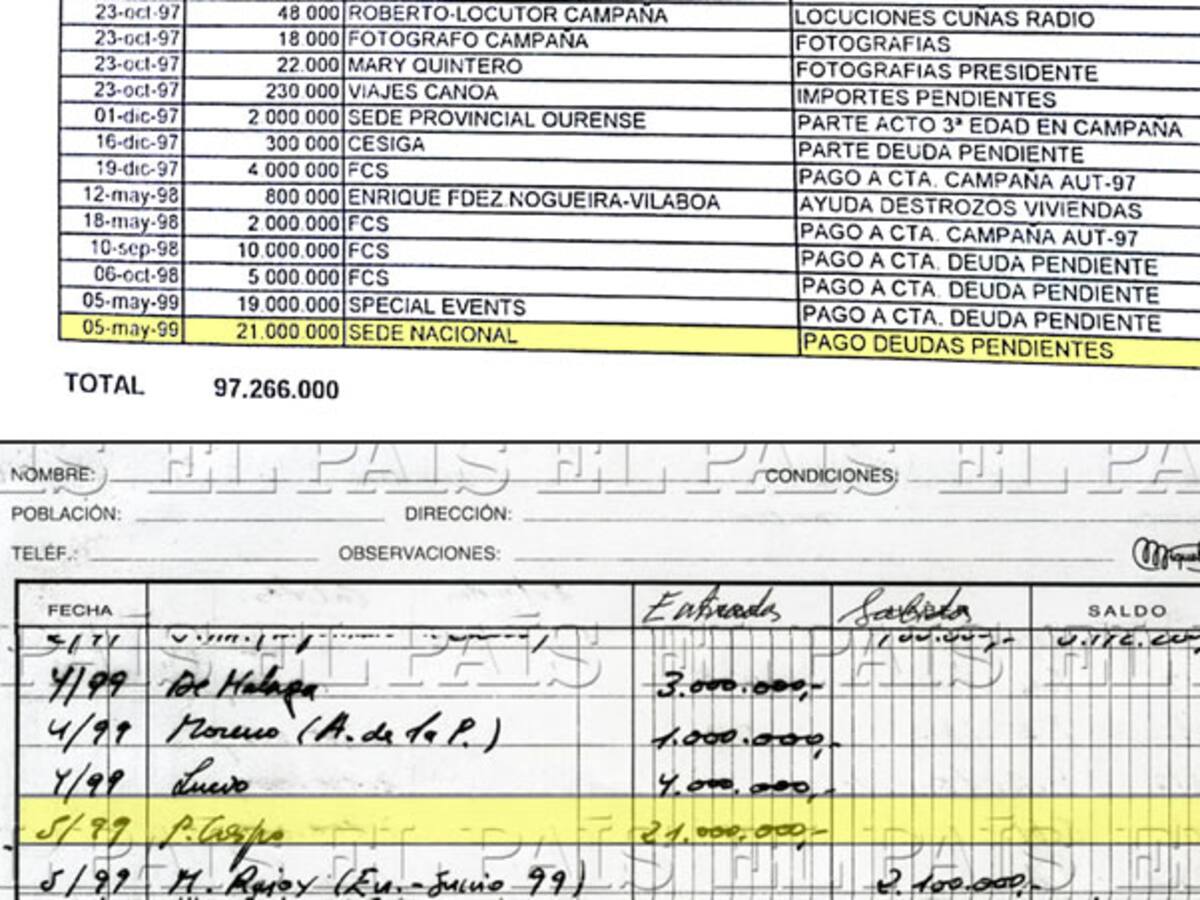 23-oct-97 48 000 ROBERTO-LOCUTOR CAMPAÑA LOCUCIONES CUÑAS RADIO
23-oct-97 18.000 FOTOGRAFO CAMPAÑA FOTOGRAFIAS
23-oct-97 22.000 MARY QUINTERO FOTOGRAFIAS PRESIDENTE
23-oct-97 230 000 VIAJES CANOA IMPORTES PENDIENTES
01-dic-97 2 000 000 SEDE PROVINCIAL OURENSE PARTE ACTO 3ª EDAD EN CAMPAÑA
16-dic-97 300 000 CESIGA PARTE DEUDA PENDIENTE
19-dic-97 4 000 000 FCS PAGO A CTA. CAMPAÑA AUT-97
12-may-98 800 000 ENRIQUE FDEZ.NOGUEIRA-VILABOA AYUDA DESTROZOS VIVIENDAS
18-may-98 2.000 000 FCS PAGO A CTA. CAMPAÑA AUT-97
10-sep-98 10.000.000 FCS PAGO A CTA. DEUDA PENDIENTE
06-oct-98 5 000.000 FCS PAGO A CTA. DEUDA PENDIENTE
05-may-99 19 000.000 SPECIAL EVENTS PAGO A CTA. DEUDA PENDIENTE
05-may-99 21.000 000 SEDE NACIONAL PAGO DEUDAS PENDIENTES
TOTAL 97.266.000
EL PAÍS EL PAÍS EL PA
NOMBRE: CONDICIONES:
POBLACIÓN: DIRECCIÓN:
TELÉF.: OBSERVACIONES: Miquel
FECHA Entrada Salida SALDO
4/99 De Malaga 3.000.000,-
4/99 Moreno (A. de la P.) 1.000.000,-
4/99 4.000.000,-
5/99 P. Crespo 21.000.000,-
5/99 M. Rajoy (En.-Junio 99) 2.100.000,-